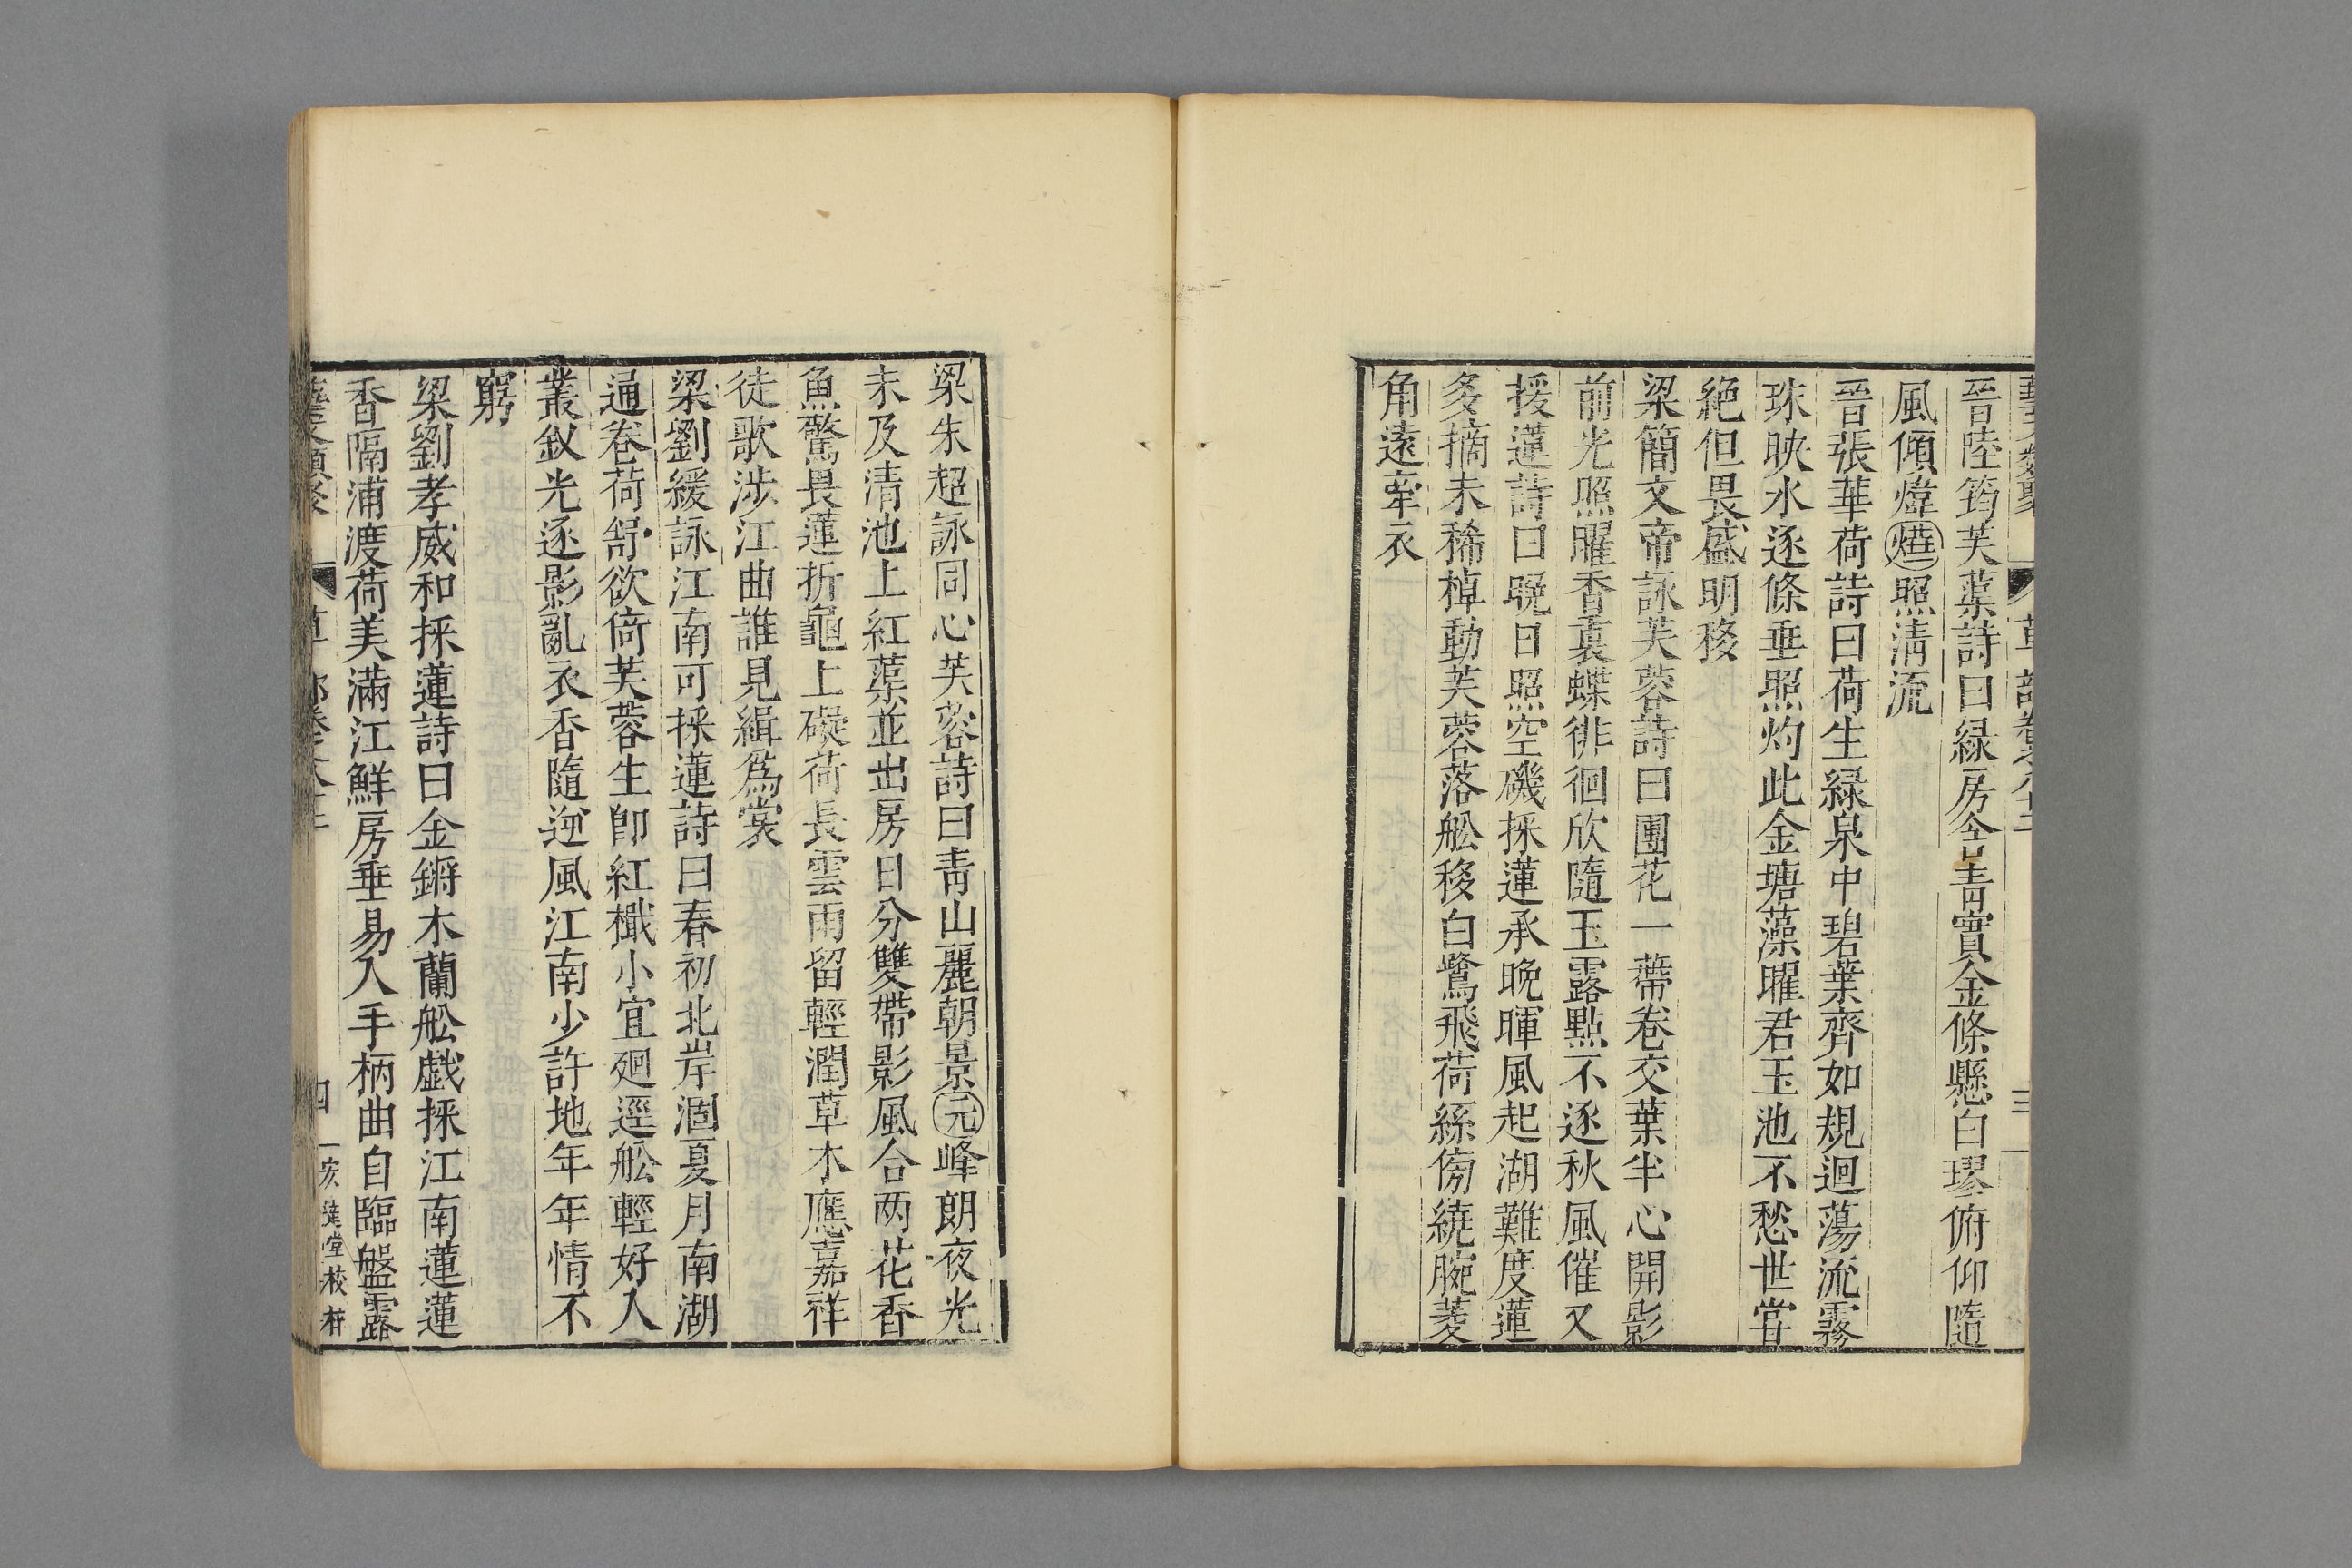 晉陸筠芙蕖詩曰緑房含青實金條懸白璆俯仰隨
風傾煒燁照淸流
晉張華荷詩曰荷生緑泉中碧葉齊如規迴蕩流霧
珠映水逐條垂照灼此金塘藻曜君玉池不愁世賞
絶但畏盛明移
梁簡文帝詠芙蓉詩曰圓花一蔕卷交葉半心開影
前光照曜香裏蝶徘徊欣隨玉露點不逐秋風催又
援蓮詩曰晩日照空磯採蓮承晩暉風起湖難度蓮
多摘未稀棹動芙蓉落舩移白鷺飛荷絲傍繞腕菱
角遠牽衣
梁朱超詠同心芙蓉詩曰青山麗朝景元峰朗夜光
未及清池上紅蕖並出房日分雙帶影風合两花香
魚驚畏蓮折龜上礙荷長雲雨留輕潤草木應嘉祥
徒歌涉江曲誰見緝爲裳
梁劉緩詠江南可採蓮詩曰春初北岸涸夏月南湖
通卷荷舒欲倚芙蓉生卽紅檝小宜廻逕舩輕好入
叢釵光逐影亂衣香隨逆風江南少許地年年情不
窮
梁劉孝威和採蓮詩曰金鏘木蘭舩戯採江南蓮蓮
香隔浦渡荷美滿江鮮房垂易入手柄曲自臨盤露
四